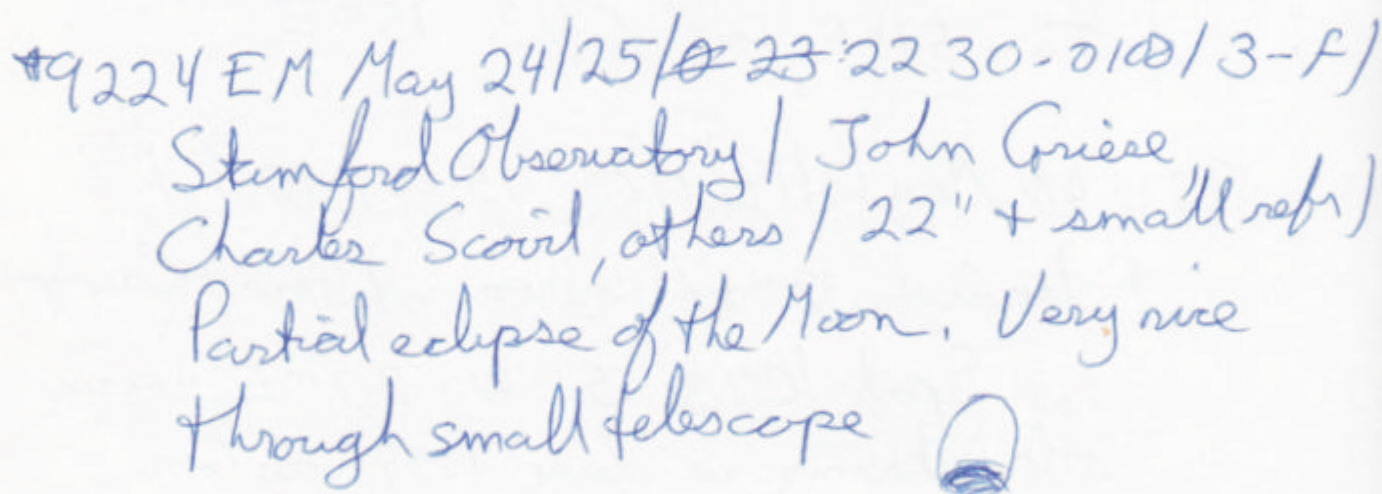 *9224 EM May 24/25/0 23:22 30-0100/3-F/
Stamford Observatory/ John Griese,
Charles Scovil, others / 22" + small refr/
Partial eclipse of the Moon. Very nice
through small telescope